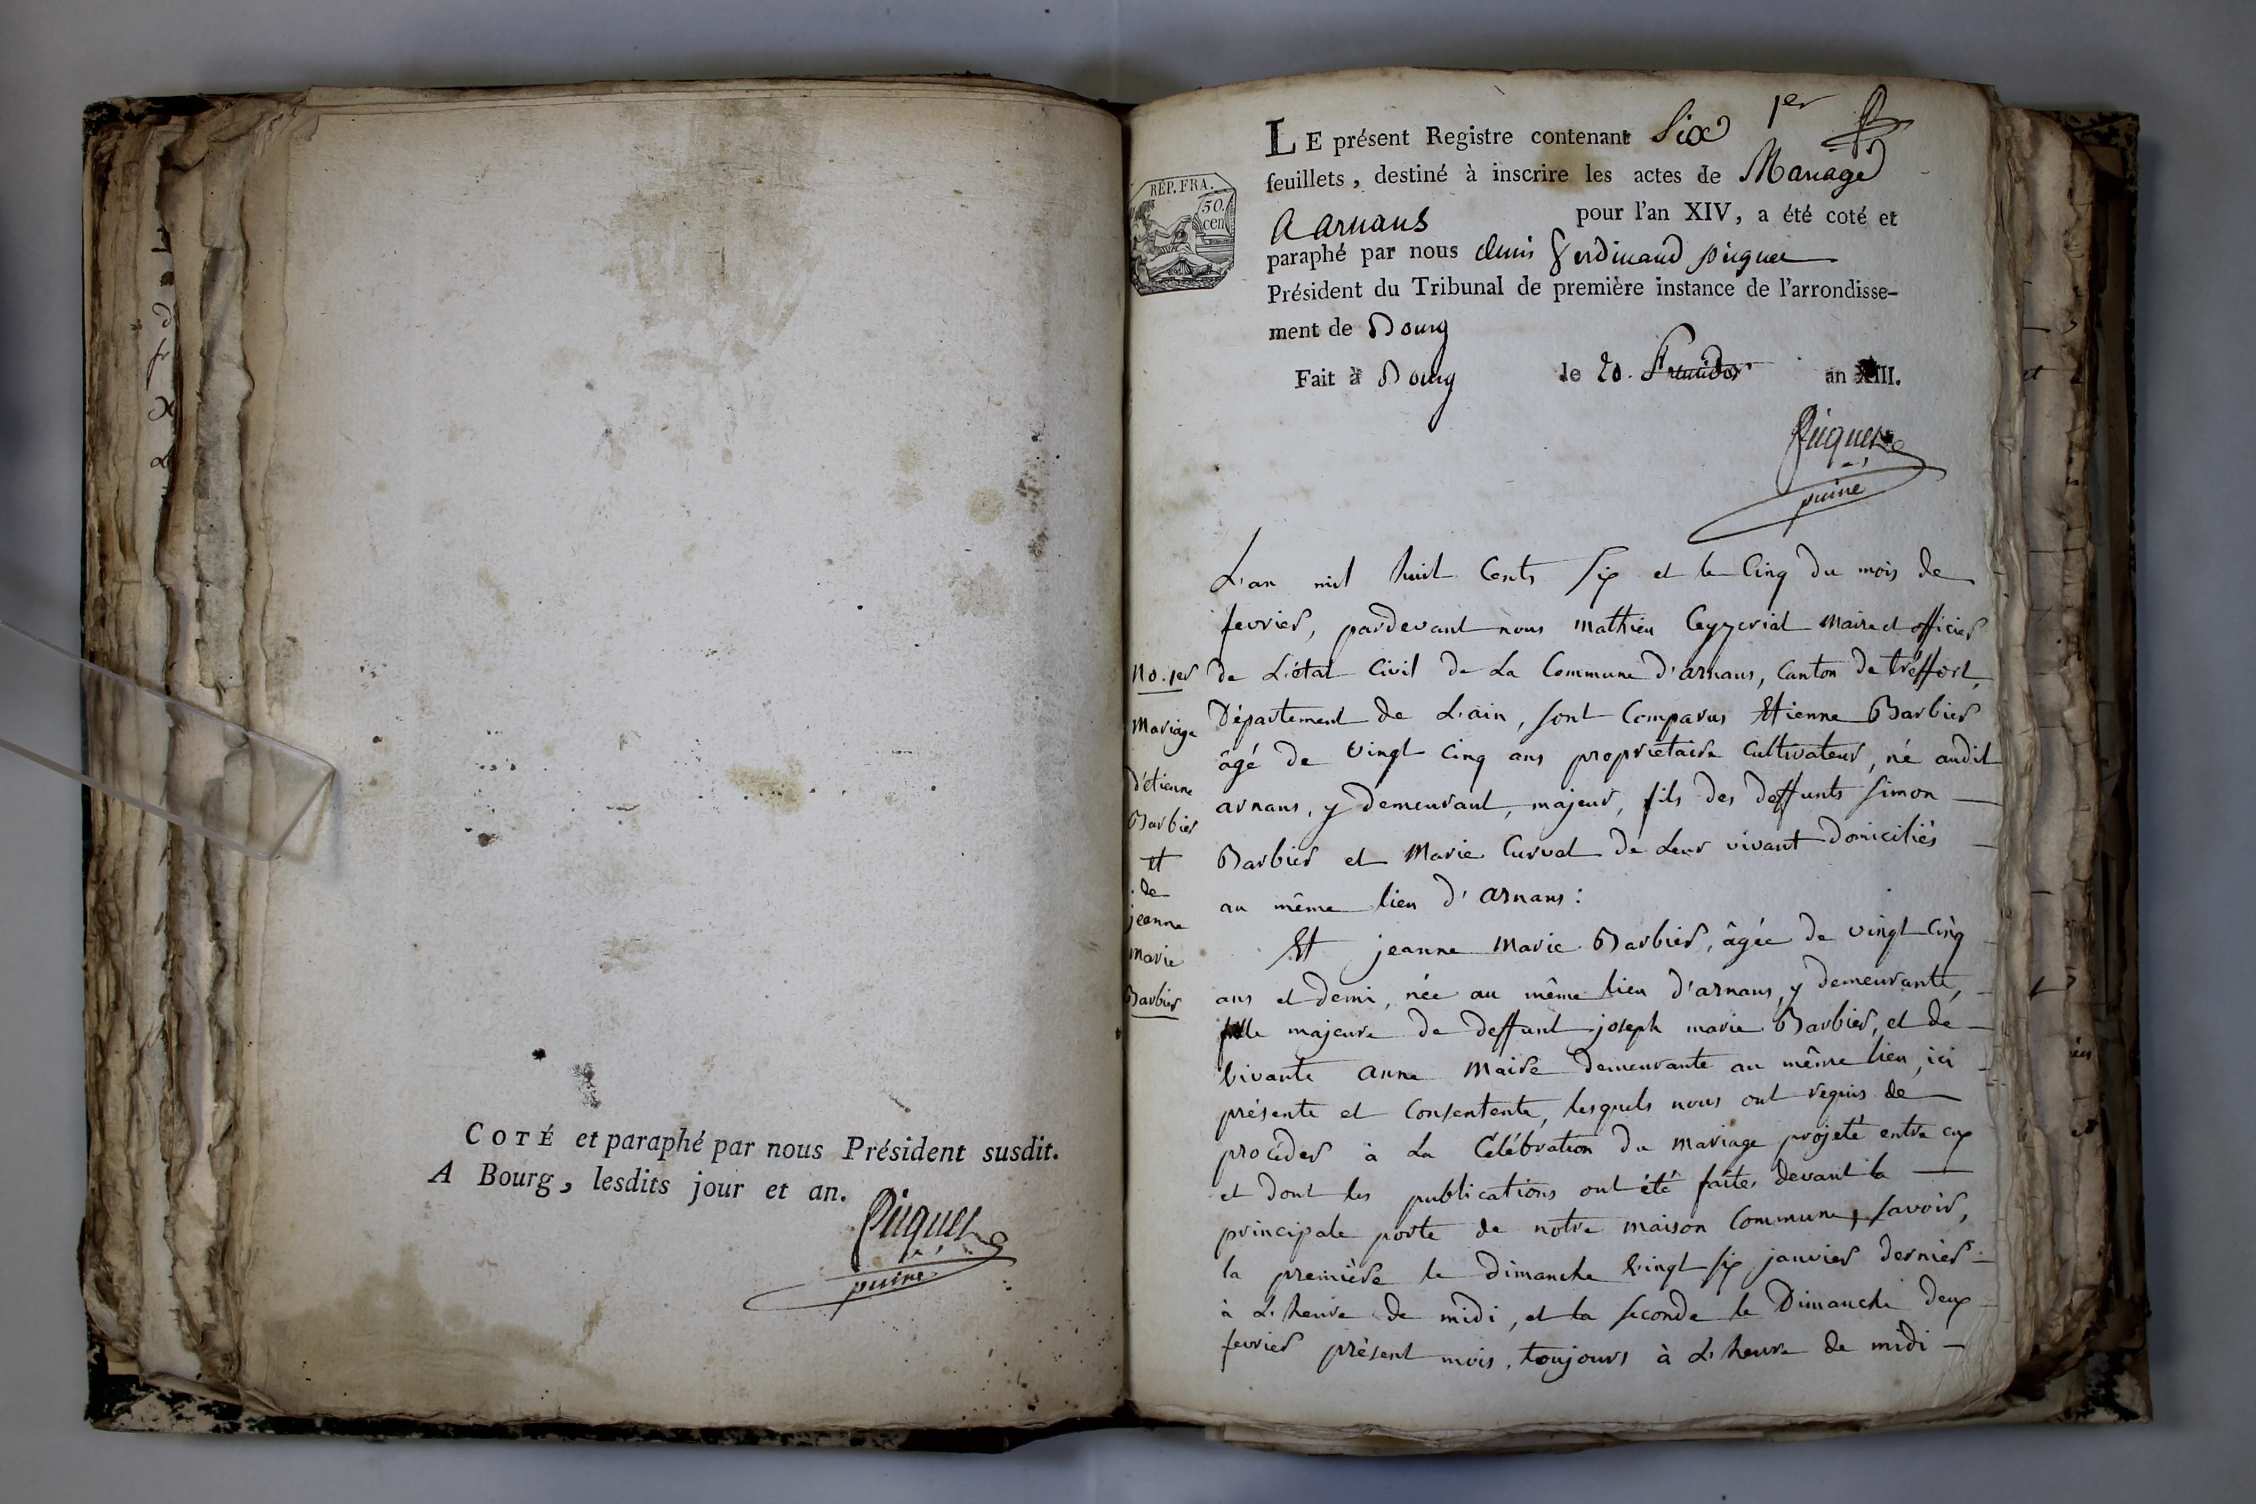 COTÉ et paraphé par nous Président susdit.
A Bourg, lesdits jour et an.
Picquet
puiné
1er
LE présent Registre contenant Six
feuillets, destiné à inscrire les actes de Mariage
a arnans pour l'an XIV, a été coté et
paraphé par nous denis ferdinand picquet
Président du Tribunal de première instance de l'arrondisse-
ment de Bourg
Fait à Bourg le 20. Fructidor an XIII.
Picquet
puiné
RÉP. FRA.
50.
cen
L'an mil huit Cents Six et le Cinq du mois de
fevrier, pardevant nous mathieu Ceyzeriat Maire et officier
de L'état Civil de La Commune d'arnans, Canton de tréffort,
Département de L'ain, sont Comparus Etienne Barbier
âgé de vingt Cinq ans propriétaire Cultivateur, né audit
arnans, y demeurant, majeur, fils des deffunts Simon
Barbier et Marie Curvat de Leur vivant domiciliés
au même lieu d'arnans :
Et jeanne Marie Barbier, âgée de vingt Cinq
ans et demi, née au même lieu d'arnans, y demeurante,
fille majeure de deffunt joseph marie Barbier, et de
vivante anne Maire demeurante au même lieu, ici
présente et Consentente, lesquels nous ont requis de
procéder à La Célébration du mariage projeté entre eux
et dont les publications ont été faites devant la
principale porte de notre maison Commune, Savoir,
la première le dimanche vingt six janvier dernier
à L'heure de midi, et la seconde le Dimanche deux
fevrier présent mois, toujours à L'heure de midi
no. 1er
Mariage
d'étienne
Barbier
et
de
jeanne
marie
Barbier